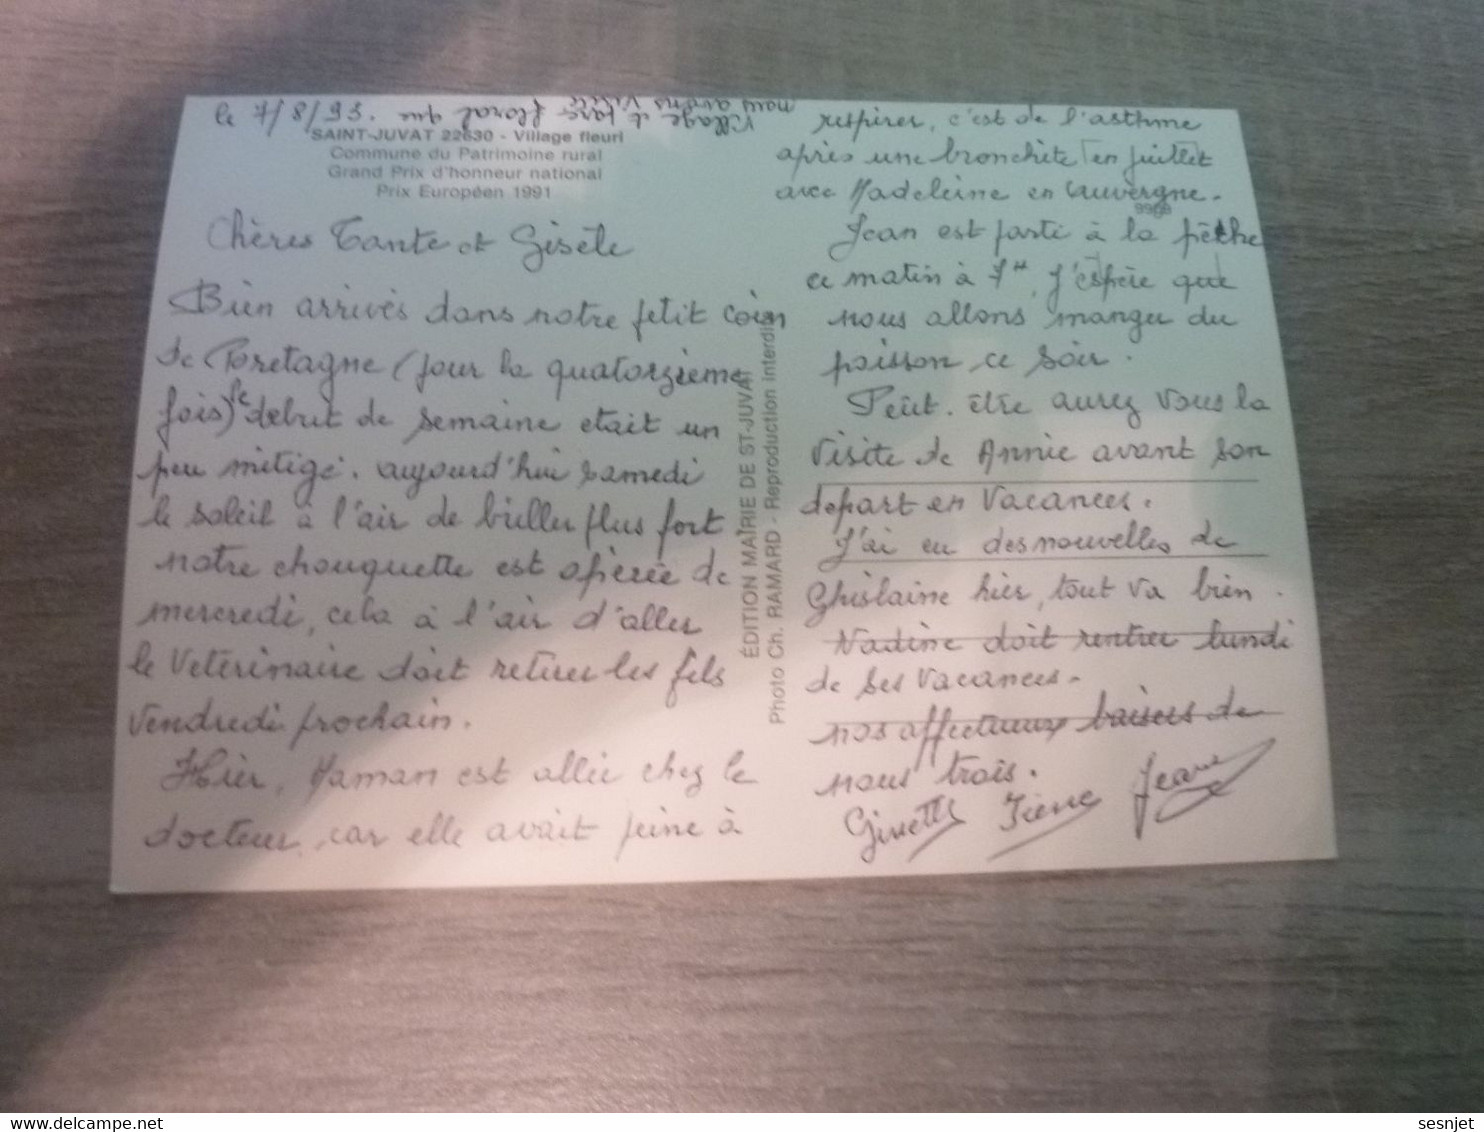 le 7/8/93.
village et parc floral que
nous avons visité
SAINT-JUVAT 22630 - Village fleuri
Commune du Patrimoine rural
Grand Prix d'honneur national
Prix Européen 1991
Chères Tante et Gisèle
Bien arrivés dans notre petit coin
de Bretagne (pour la quatorzième
fois) le debut de semaine etait un
peu mitigé. aujourd'hui samedi
le soleil à l'air de briller plus fort
notre chouquette est opérée de
mercredi, cela à l'air d'aller
le Veterinaire doit retirer les fils
Vendredi prochain.
Hier, Maman est allée chez le
docteur, car elle avait peine à
ÉDITION MAIRIE DE ST-JUVAT
Photo Ch. RAMARD - Reproduction interdite
respirer, c'est de l'asthme
après une bronchite en juillet
avec Madeleine en Auvergne.
Jean est parti à la pêche
ce matin à 7h, J'espère que
nous allons manger du
poisson ce soir.
Peut-être aurez Vous la
Visite de Annie avant son
depart en Vacances.
J'ai eu des nouvelles de
Ghislaine hier, tout va bien.
Nadine doit rentrer lundi
de ses vacances.
nos affectueux baisers de
nous trois.
Ginette